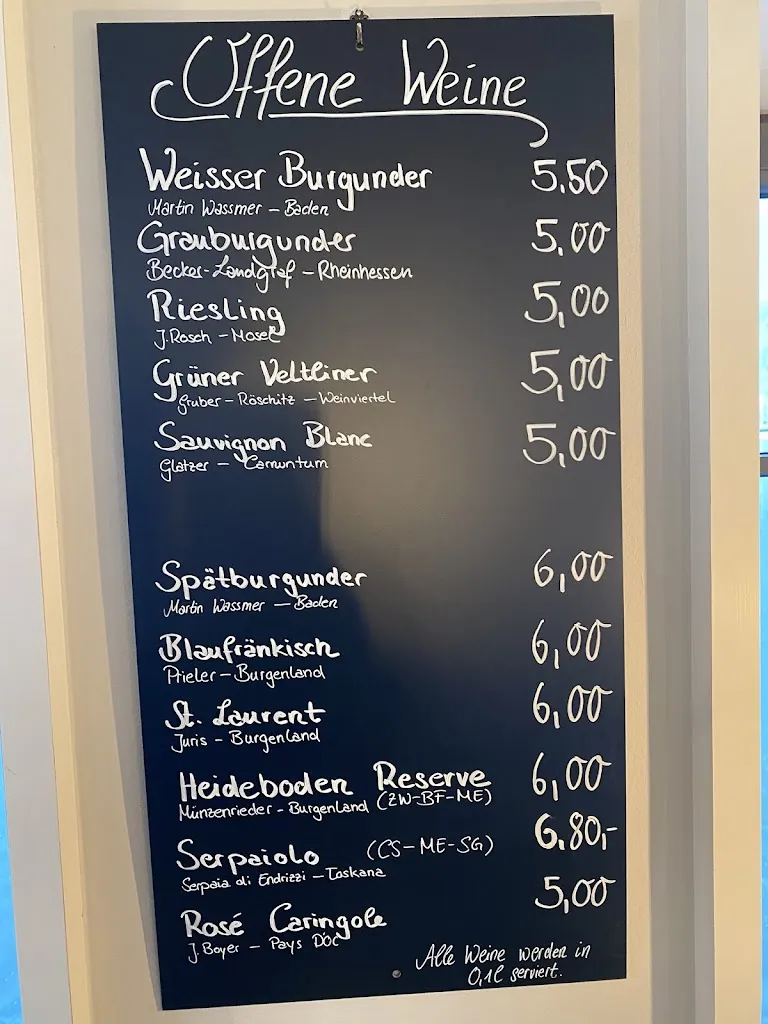 Offene Weine
Weisser Burgunder 5.50
Martin Wassmer - Baden
Grauburgunder 5,00
Becker-Landgraf - Rheinhessen
Riesling 5,00
J.Rosch - Mosel
Grüner Veltliner 5,00
Gruber - Röschitz - Weinviertel
Sauvignon Blanc 5,00
Glatzer - Carnuntum
Spätburgunder 6,00
Martin Wassmer - Baden
Blaufränkisch 6,00
Prieler - Burgenland
St. Laurent 6,00
Juris - Burgenland
Heideboden Reserve 6,00
Münzenrieder - Burgenland (ZW-BF-ME)
Serpaiolo (CS-ME-SG) 6.80,-
Serpaia di Endrizzi - Toskana
Rosé Caringole 5,00
J.Boyer - Pays D'OC
Alle Weine werden in
0,1l serviert.